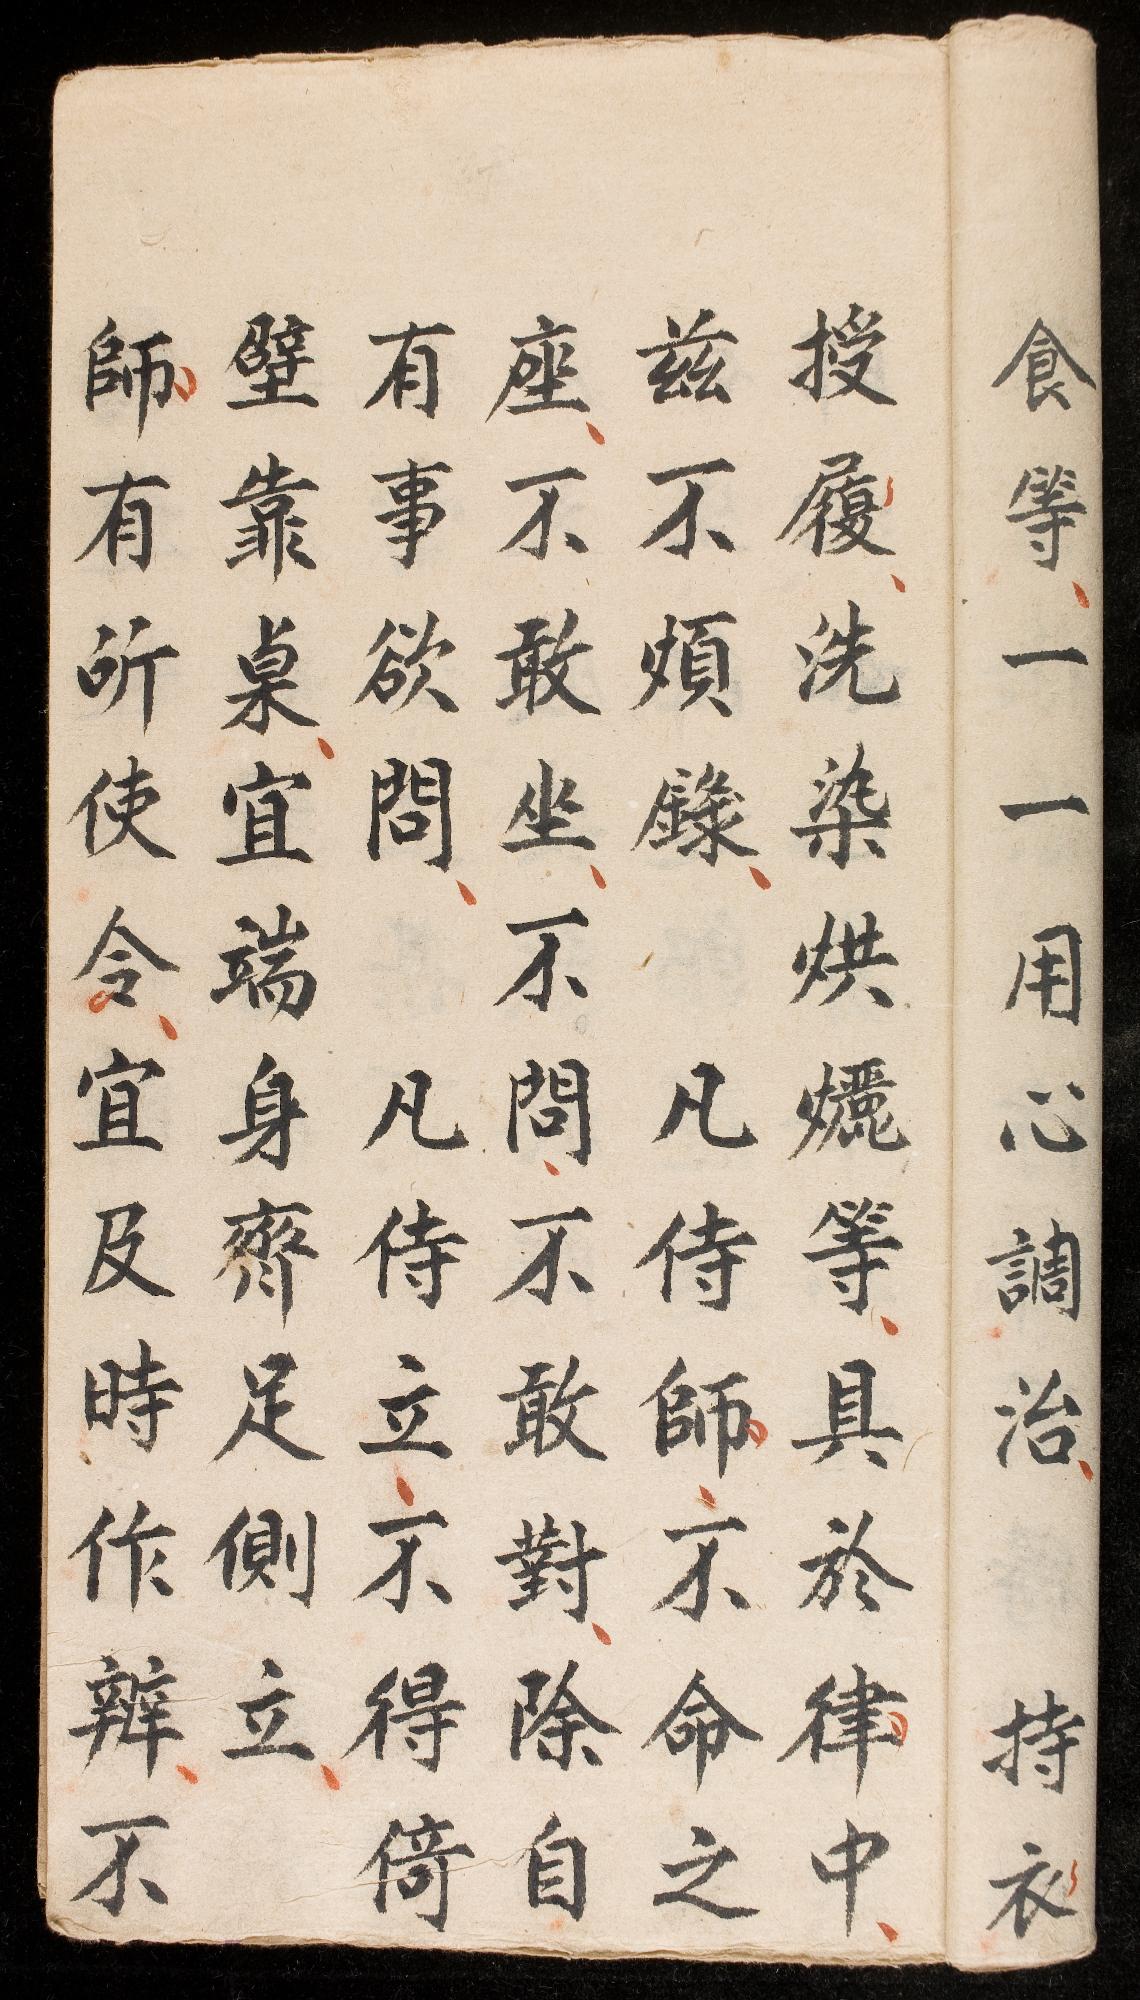 食等一一用心調治　持衣
授履洗染烘曬等具於律中
兹不煩錄　凡侍師不命之
座不敢坐不問不敢對除自
有事欲問　凡侍立不得倚
壁靠桌宜端身齊足側立
師有所使令宜及時作辨不